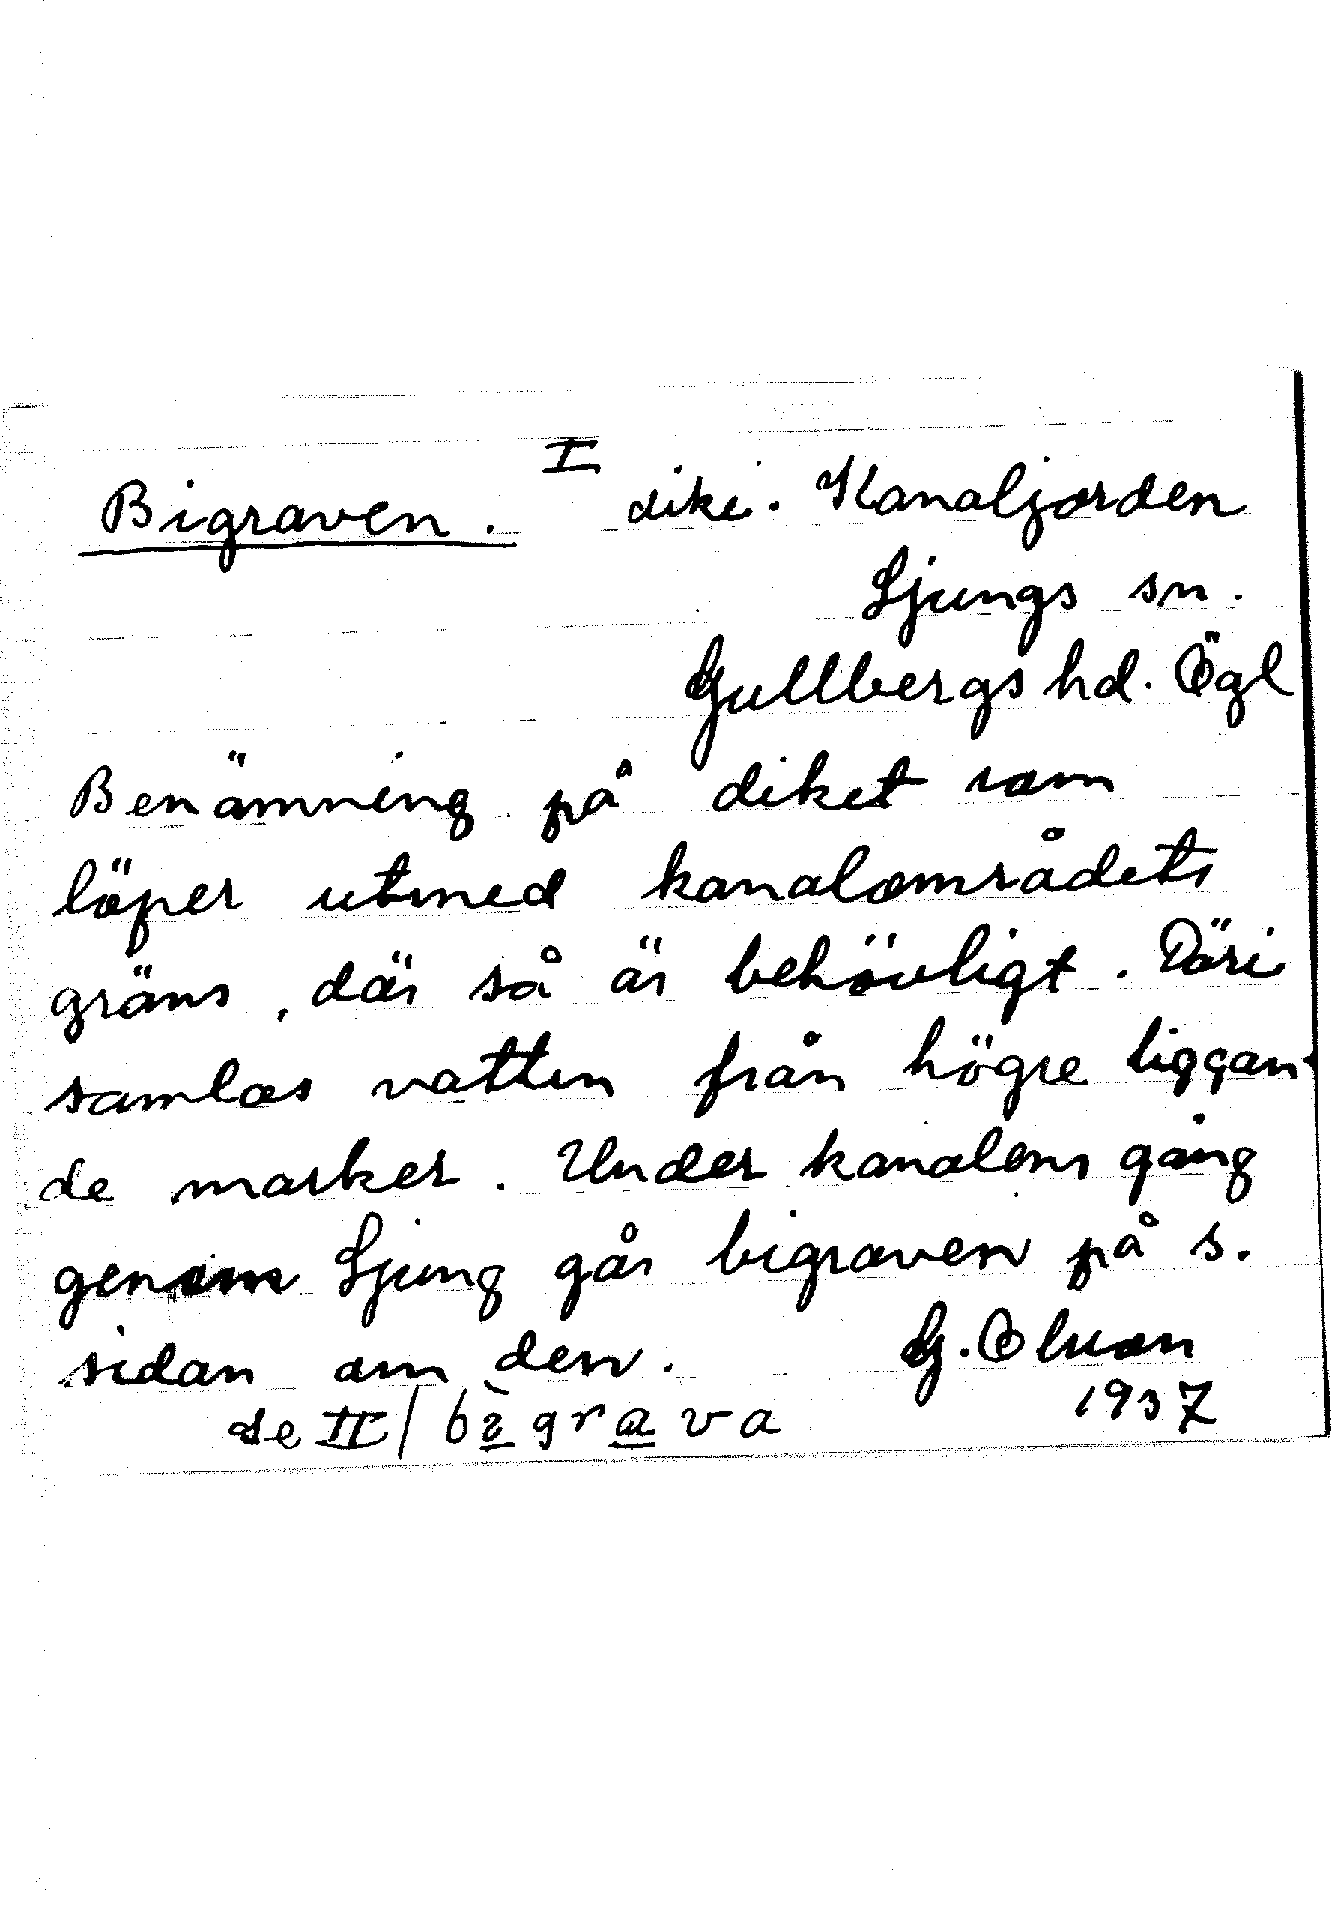 Bigraven. I dike. Kanaljorden
Ljungs sn.
Gullbergs hd. Ögl
Benämning på diket som
löper utmed kanalområdets
gräns, där så är behövligt. Däri
samlas vatten från högre liggan-
de marker. Under kanalens gång
genom Ljung går bigraven på s.
sidan om den. G. Olsson
1937
se II/ bìgrava